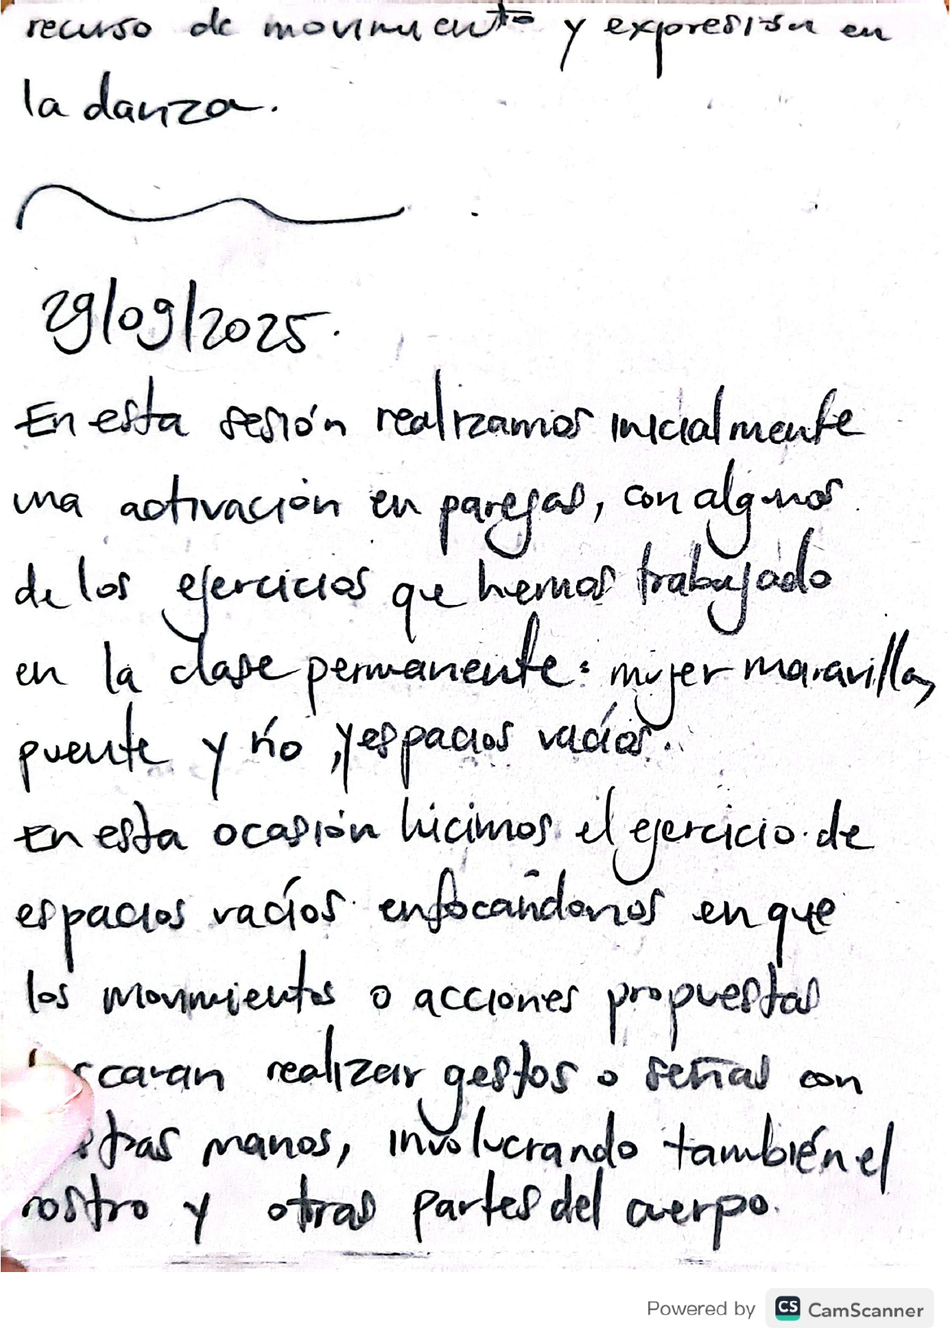 recurso de movimiento y expresión en
la danza.
29/09/2025.
En esta sesión realizamos inicialmente
una activación en parejas, con algunos
de los ejercicios que hemos trabajado
en la clase permanente: mujer maravilla,
puente y río, y espacios vacíos.
En esta ocasión hicimos el ejercicio de
espacios vacíos enfocándonos en que
los movimientos o acciones propuestas
realizar gestos o señas con
manos, involucrando también el
rostro y otras partes del cuerpo.
Powered by CS CamScanner